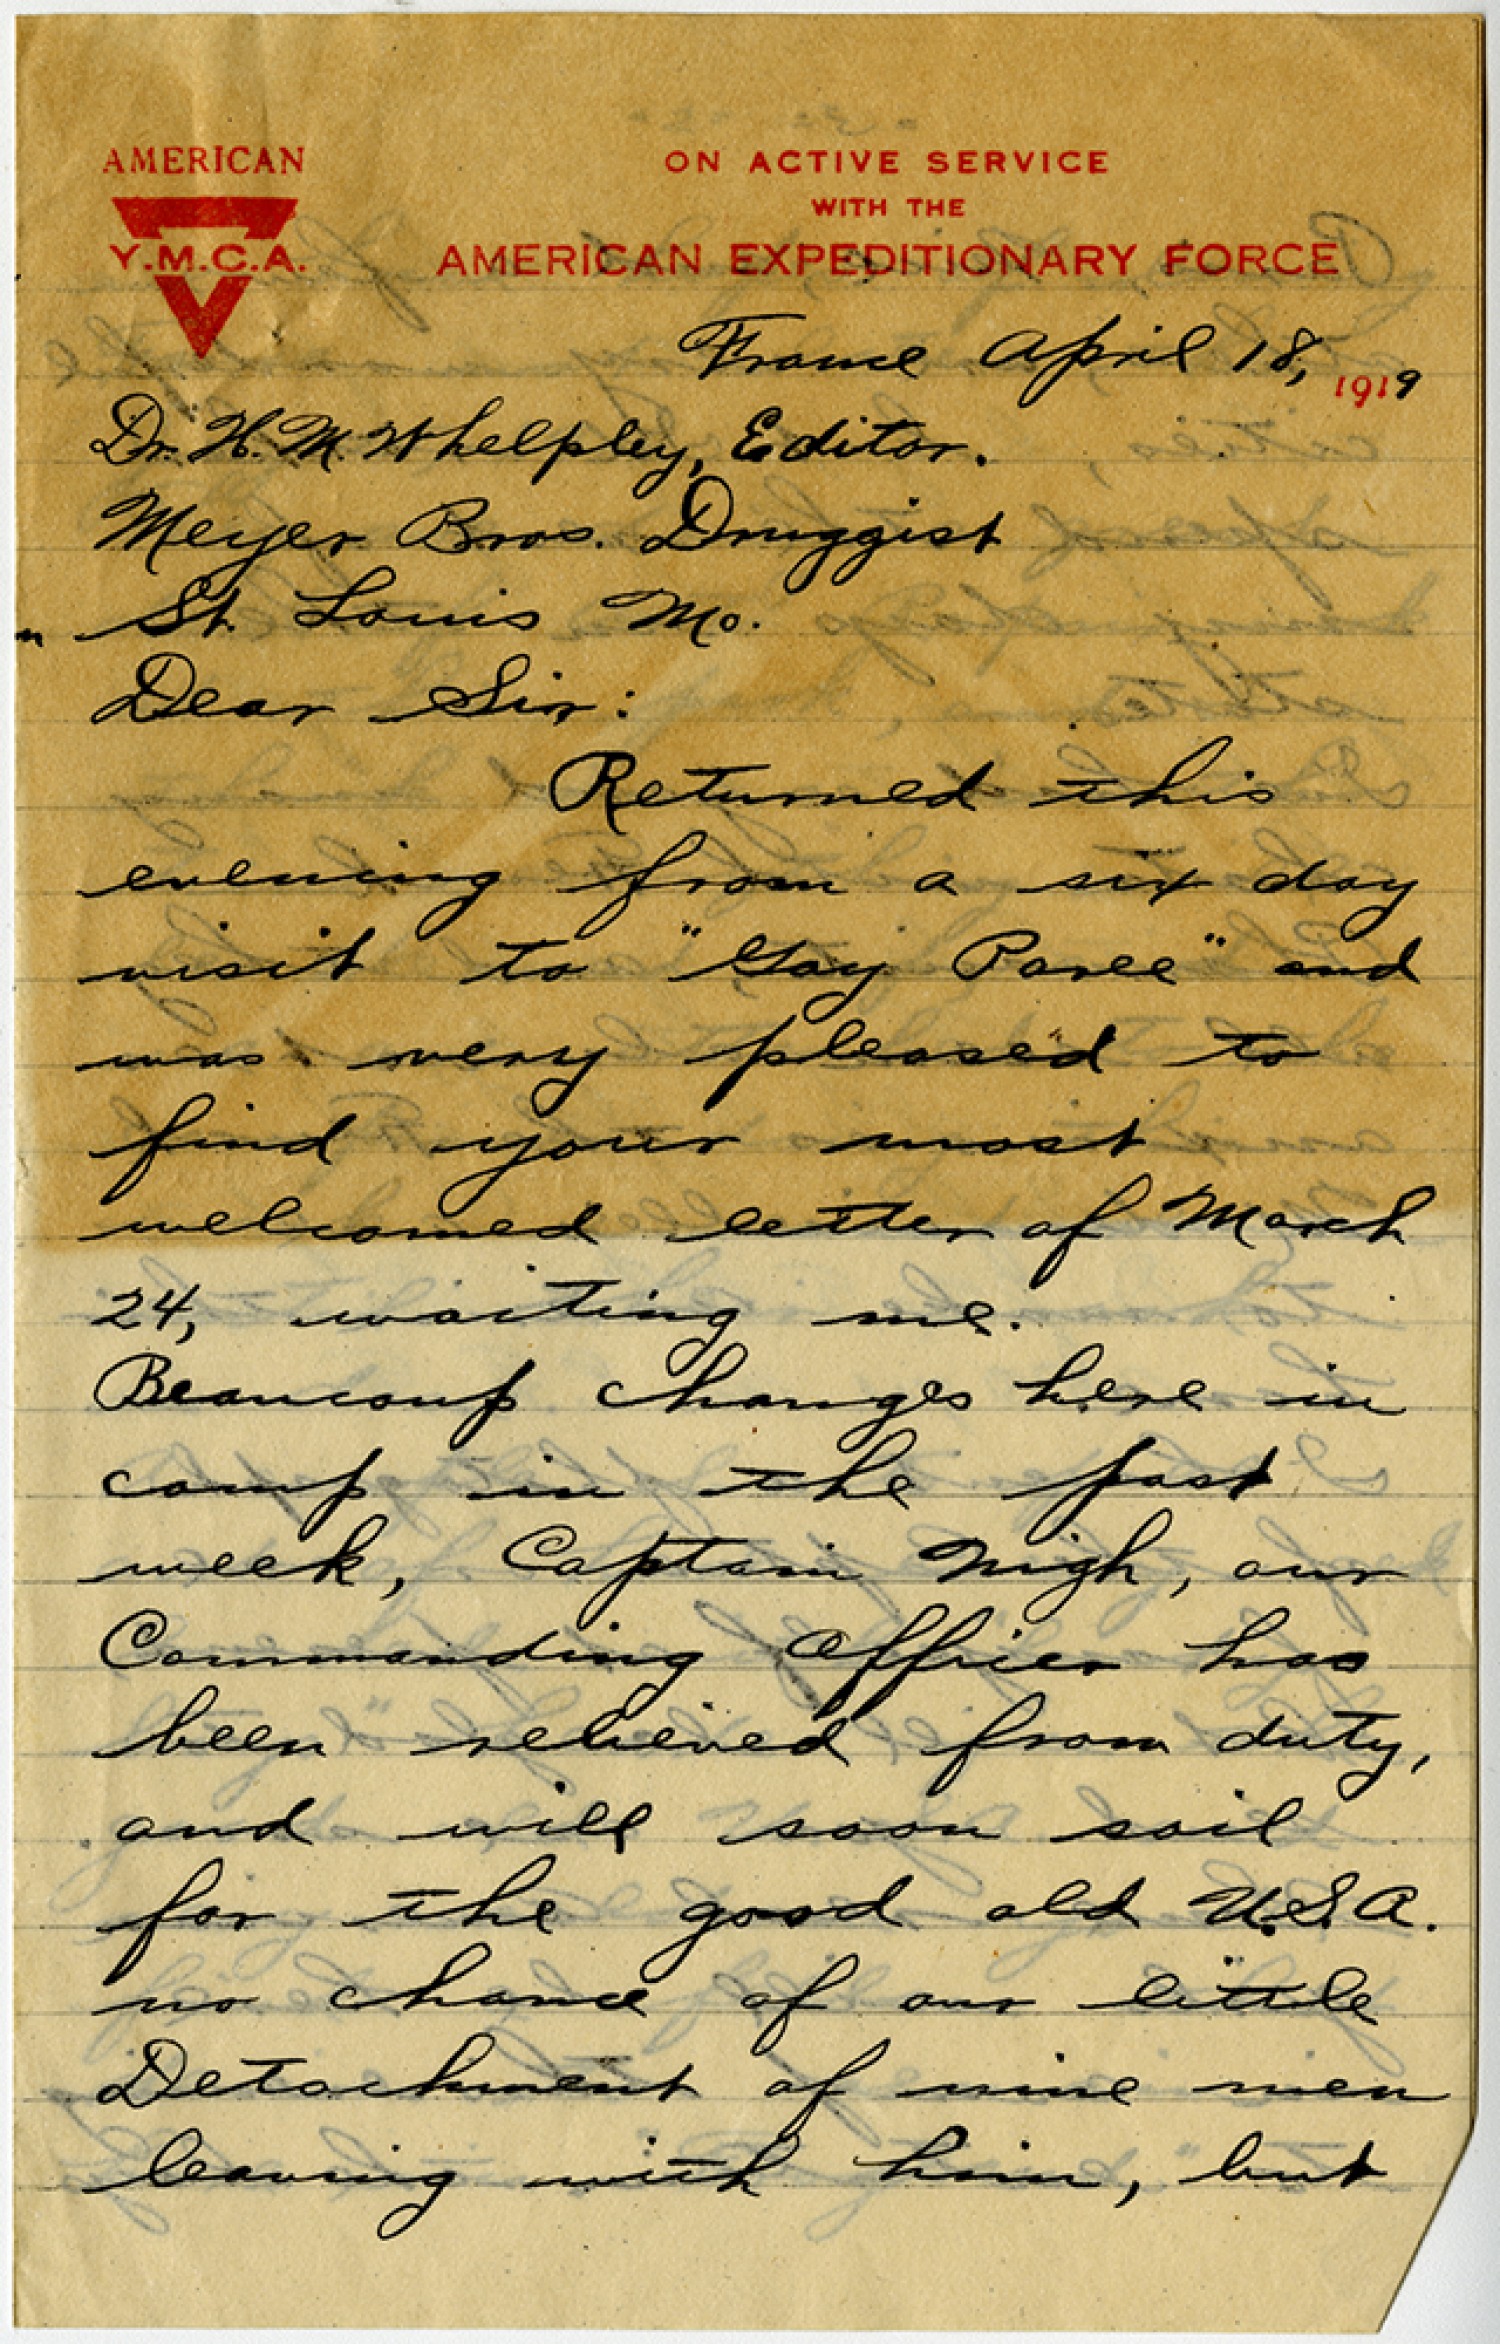 AMERICAN
Y.M.C.A.
ON ACTIVE SERVICE
WITH THE
AMERICAN EXPEDITIONARY FORCE
France April 18, 1919
Dr. H. M. Whelpley, Editor.
Meyer Bros. Druggist
St. Louis Mo.
Dear Sir:
Returned this
evening from a six day
visit to "Gay Paree" and
was very pleased to
find your most
welcomed letter of March
24, waiting me.
Beaucoup changes here in
camp in the past
week, Captain Nigh, our
Commanding Officer has
been relieved from duty,
and will soon sail
for the good old U.S.A.
no chance of our little
Detachment of nine men
leaving with him, but